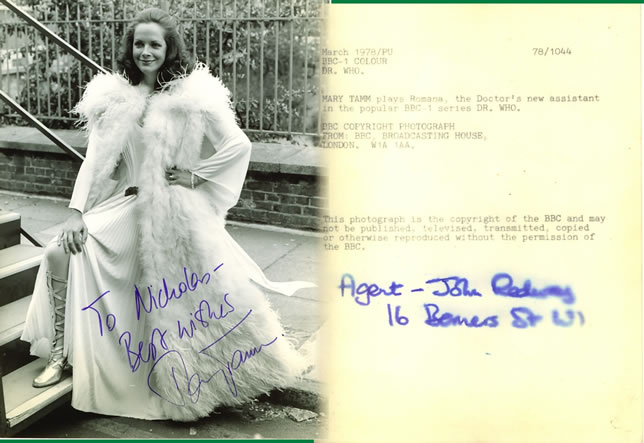 To Nicholas-
Best wishes
Mary Tamm.
March 1978/PU 78/1044
BBC-1 COLOUR
DR. WHO.
MARY TAMM plays Romana, the Doctor's new assistant
in the popular BBC-1 series DR. WHO.
BBC COPYRIGHT PHOTOGRAPH
FROM: BBC, BROADCASTING HOUSE,
LONDON. W1A 1AA.
This photograph is the copyright of the BBC and may
not be published, televised, transmitted, copied
or otherwise reproduced without the permission of
the BBC.
Agent - John Redway
16 Berners St W1